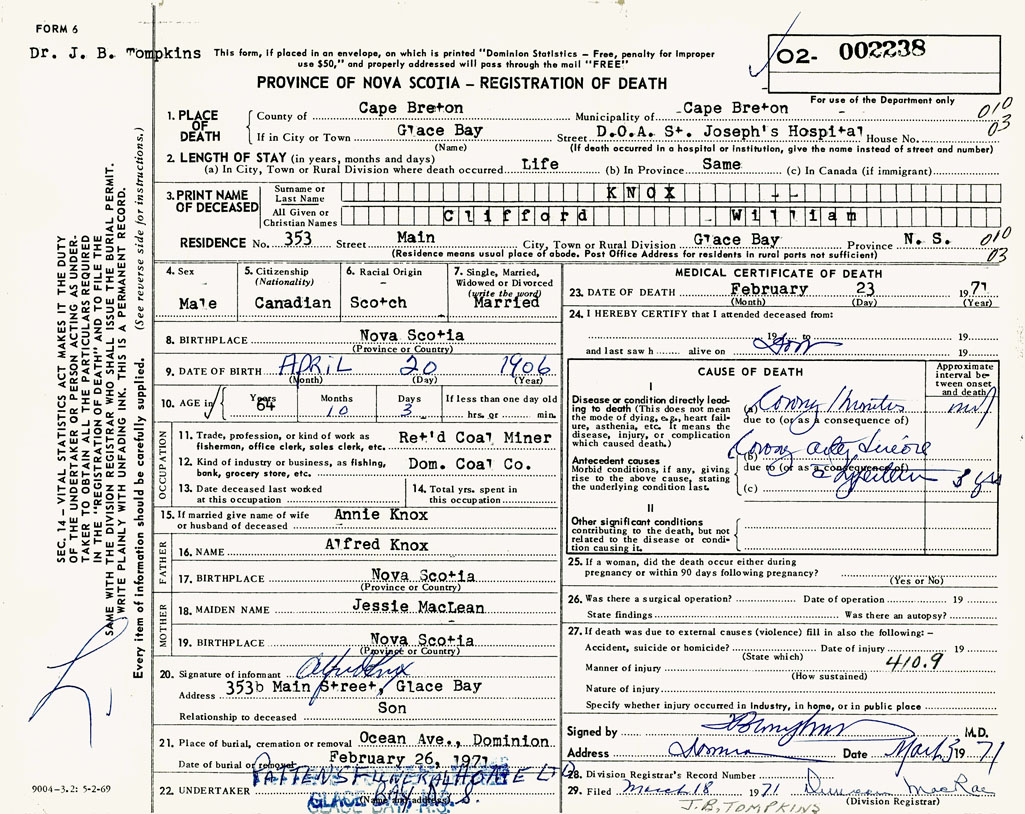 FORM 6
Dr. J. B. Tompkins
This form, if placed in an envelope, on which is printed "Dominion Statistics – Free, penalty for improper
use $50," and properly addressed will pass through the mail "FREE"
O2- 002238
PROVINCE OF NOVA SCOTIA – REGISTRATION OF DEATH
For use of the Department only
1. PLACE OF DEATH
County of Cape Breton Municipality of Cape Breton 010
If in City or Town Glace Bay Street D.O.A. St. Joseph's Hospital House No. 03
(Name) (If death occurred in a hospital or institution, give the name instead of street and number)
2. LENGTH OF STAY (in years, months and days)
(a) In City, Town or Rural Division where death occurred Life (b) In Province Same (c) In Canada (if immigrant)
3. PRINT NAME OF DECEASED
Surname or Last Name KNOX
All Given or Christian Names Clifford William
RESIDENCE No. 353 Street Main City, Town or Rural Division Glace Bay Province N. S. 010
(Residence means usual place of abode. Post Office Address for residents in rural parts not sufficient) 03
4. Sex Male
5. Citizenship (Nationality) Canadian
6. Racial Origin Scotch
7. Single, Married, Widowed or Divorced (write the word) Married
8. BIRTHPLACE Nova Scotia
(Province or Country)
9. DATE OF BIRTH APRIL 20 1906
(Month) (Day) (Year)
10. AGE in Years 64 Months 10 Days 3 If less than one day old hrs. or min.
OCCUPATION
11. Trade, profession, or kind of work as fisherman, office clerk, sales clerk, etc. Ret'd Coal Miner
12. Kind of industry or business, as fishing, bank, grocery store, etc. Dom. Coal Co.
13. Date deceased last worked at this occupation
14. Total yrs. spent in this occupation
15. If married give name of wife or husband of deceased Annie Knox
FATHER
16. NAME Alfred Knox
17. BIRTHPLACE Nova Scotia
(Province or Country)
MOTHER
18. MAIDEN NAME Jessie MacLean
19. BIRTHPLACE Nova Scotia
(Province or Country)
20. Signature of informant Alfred Knox
Address 353b Main Street, Glace Bay
Relationship to deceased Son
21. Place of burial, cremation or removal Ocean Ave., Dominion
Date of burial or removal February 26, 1971
22. UNDERTAKER PATTENS FUNERAL HOME LTD
(Name and address)
GLACE BAY N.S.
MEDICAL CERTIFICATE OF DEATH
23. DATE OF DEATH February 23 1971
(Month) (Day) (Year)
24. I HEREBY CERTIFY that I attended deceased from:
19 19
and last saw h alive on 19
CAUSE OF DEATH
Approximate interval between onset and death
I
Disease or condition directly leading to death (This does not mean the mode of dying, e.g., heart failure, asthenia, etc. It means the disease, injury, or complication which caused death.)
(a)
due to (or as a consequence of)
Antecedent causes
Morbid conditions, if any, giving rise to the above cause, stating the underlying condition last.
(b)
due to (or as a consequence of)
(c) 3 yrs
II
Other significant conditions
contributing to the death, but not related to the disease or condition causing it.
25. If a woman, did the death occur either during
pregnancy or within 90 days following pregnancy?
(Yes or No)
26. Was there a surgical operation? Date of operation 19
State findings Was there an autopsy?
27. If death was due to external causes (violence) fill in also the following: –
Accident, suicide or homicide? Date of injury 19
(State which)
Manner of injury 410.9
(How sustained)
Nature of injury
Specify whether injury occurred in Industry, in home, or in public place
Signed by M.D.
Address Date March 3 1971
28. Division Registrar's Record Number
29. Filed March 18 1971 Duncan MacRae
(Division Registrar)
J.B. TOMPKINS
9004–3.2: 5-2-69
SEC. 14 – VITAL STATISTICS ACT MAKES IT THE DUTY
OF THE UNDERTAKER OR PERSON ACTING AS UNDER-
TAKER TO OBTAIN ALL THE PARTICULARS REQUIRED
IN THE "REGISTRATION OF DEATH" AND TO FILE THE
SAME WITH THE DIVISION REGISTRAR WHO SHALL ISSUE THE BURIAL PERMIT.
WRITE PLAINLY WITH UNFADING INK. THIS IS A PERMANENT RECORD.
Every item of information should be carefully supplied. (See reverse side for instructions.)